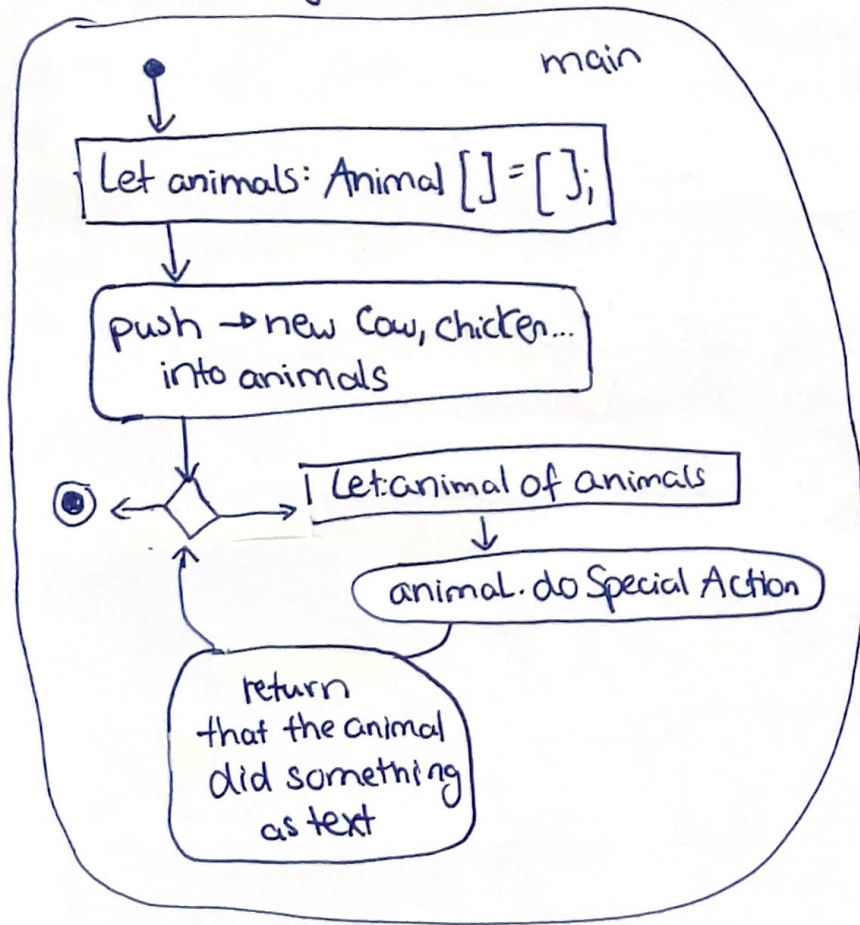 main
Let animals: Animal [] = [];
push → new Cow, chicken...
into animals
Let:animal of animals
animal.doSpecial Action
return
that the animal
did something
as text